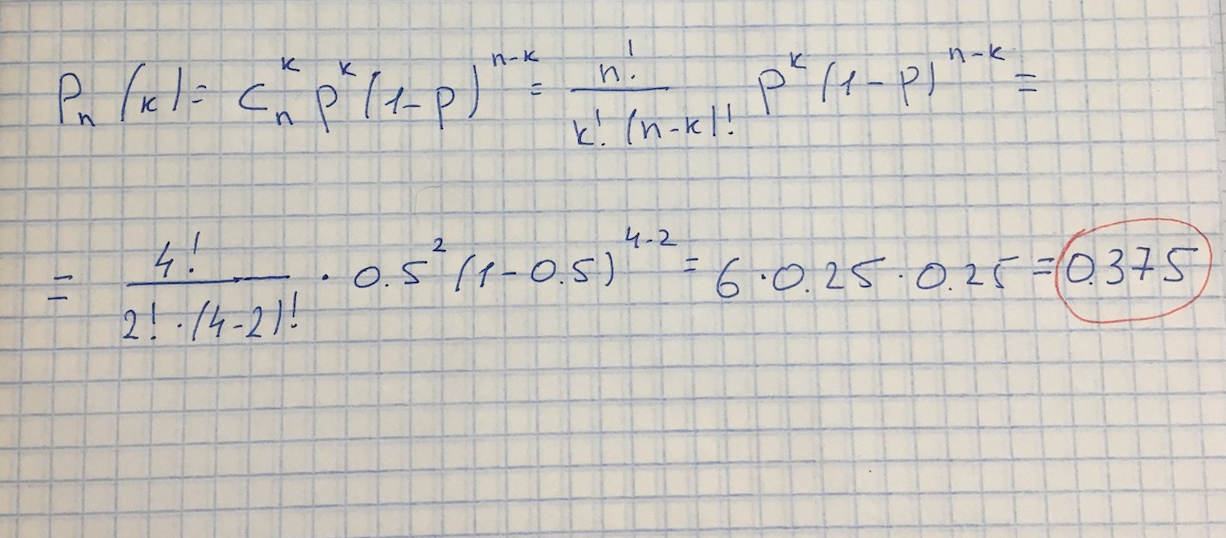 Pₙ(k) = Cₙᵏ pᵏ (1-p)ⁿ⁻ᵏ = n! / k! (n-k)! pᵏ (1-p)ⁿ⁻ᵏ =
= 4! / 2! · (4-2)! · 0.5² (1-0.5)⁴⁻² = 6 · 0.25 · 0.25 = 0.375